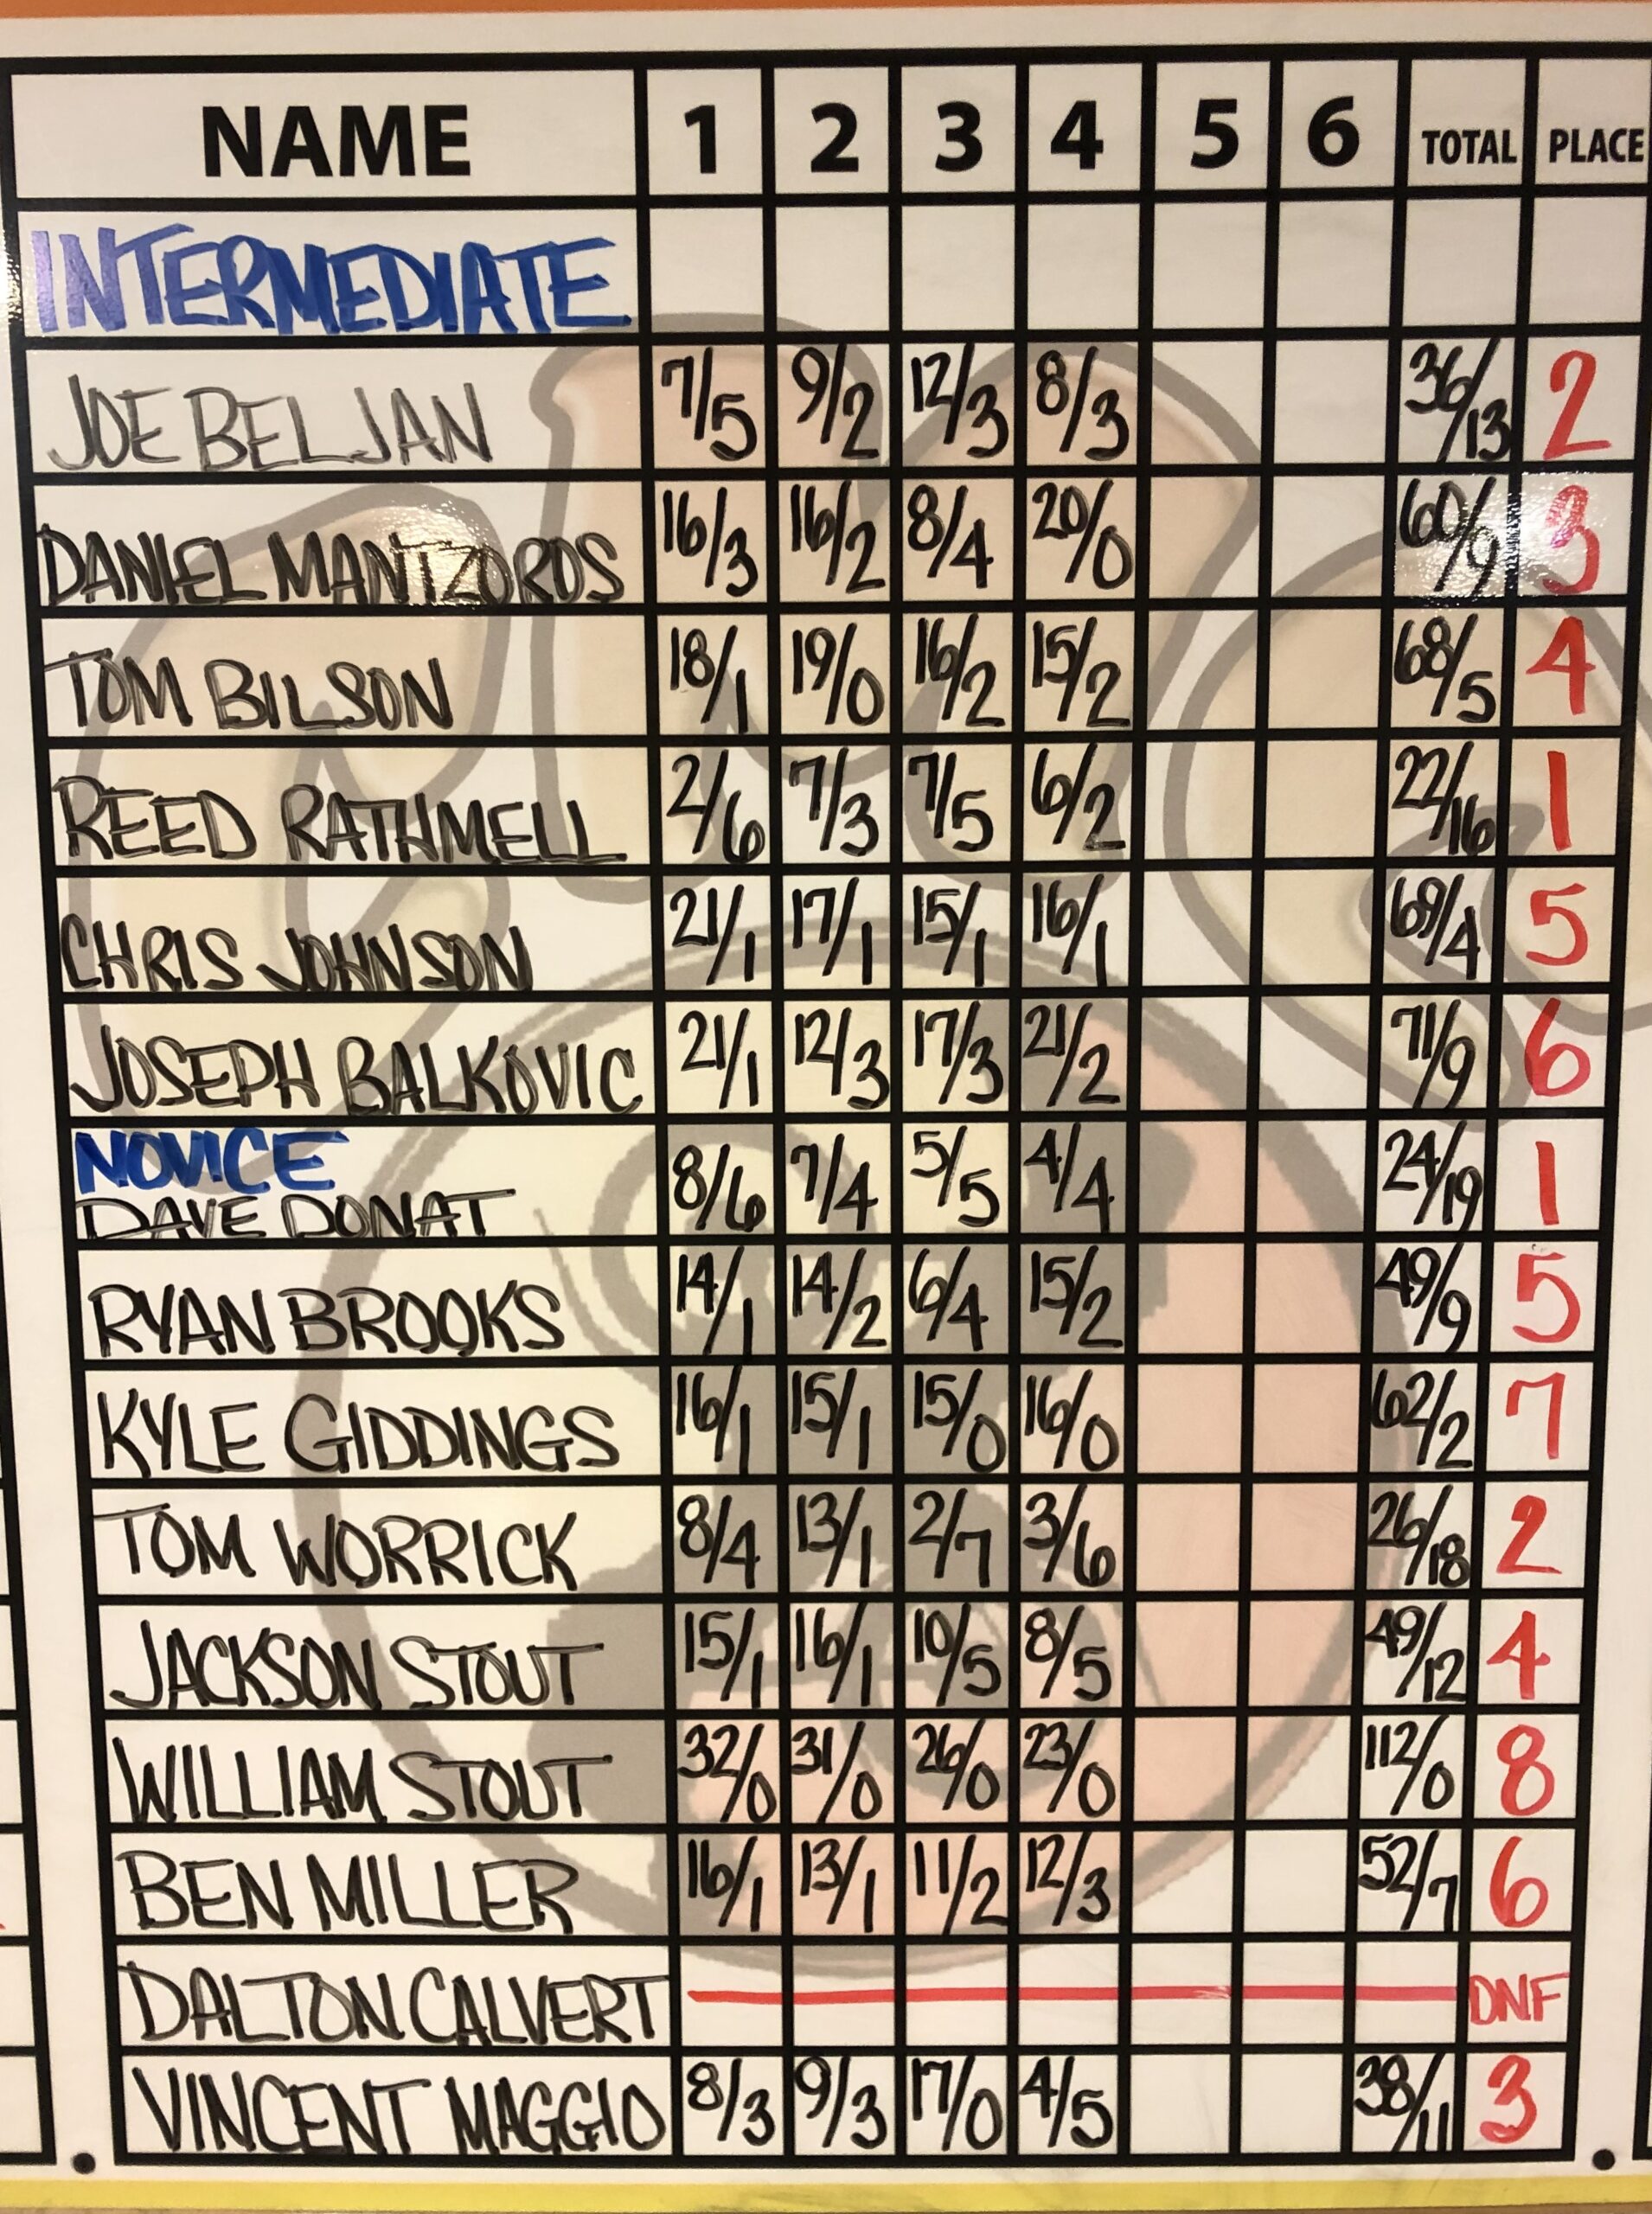 NAME 1 2 3 4 5 6 TOTAL PLACE
INTERMEDIATE
JOE BELJAN 7/5 9/2 12/3 8/3 36/13 2
DANIEL MANTZOROS 16/3 16/2 8/4 20/0 60/9 3
TOM BILSON 18/1 19/0 16/2 15/2 68/5 4
REED RATHMELL 2/6 7/3 7/5 6/2 22/16 1
CHRIS JOHNSON 21/1 17/1 15/1 16/1 69/4 5
JOSEPH BALKOVIC 21/1 12/3 17/3 21/2 71/9 6
NOVICE
DAVE DONAT 8/6 7/4 5/5 4/4 24/19 1
RYAN BROOKS 14/1 14/2 6/4 15/2 49/9 5
KYLE GIDDINGS 16/1 15/1 15/0 16/0 62/2 7
TOM WORRICK 8/4 13/1 2/7 3/6 26/18 2
JACKSON STOUT 15/1 16/1 10/5 8/5 49/12 4
WILLIAM STOUT 32/0 31/0 26/0 23/0 112/0 8
BEN MILLER 16/1 13/1 11/2 12/3 52/7 6
DALTON CALVERT DNF
VINCENT MAGGIO 8/3 9/3 17/0 4/5 38/11 3